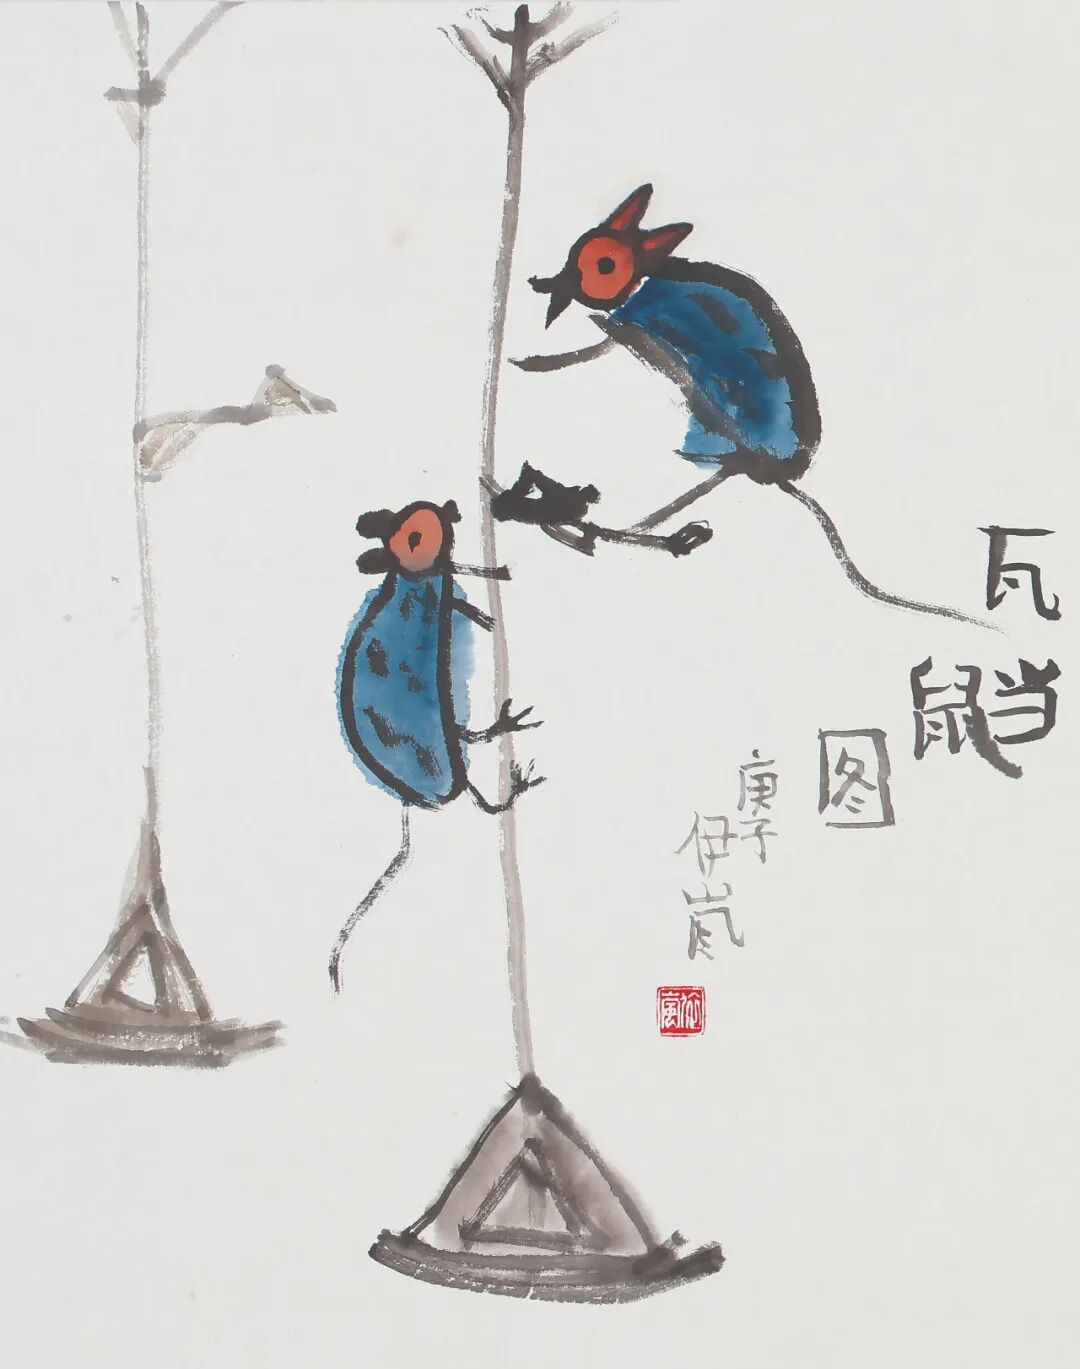 瓦当
鼠
图
庚子
伊岚